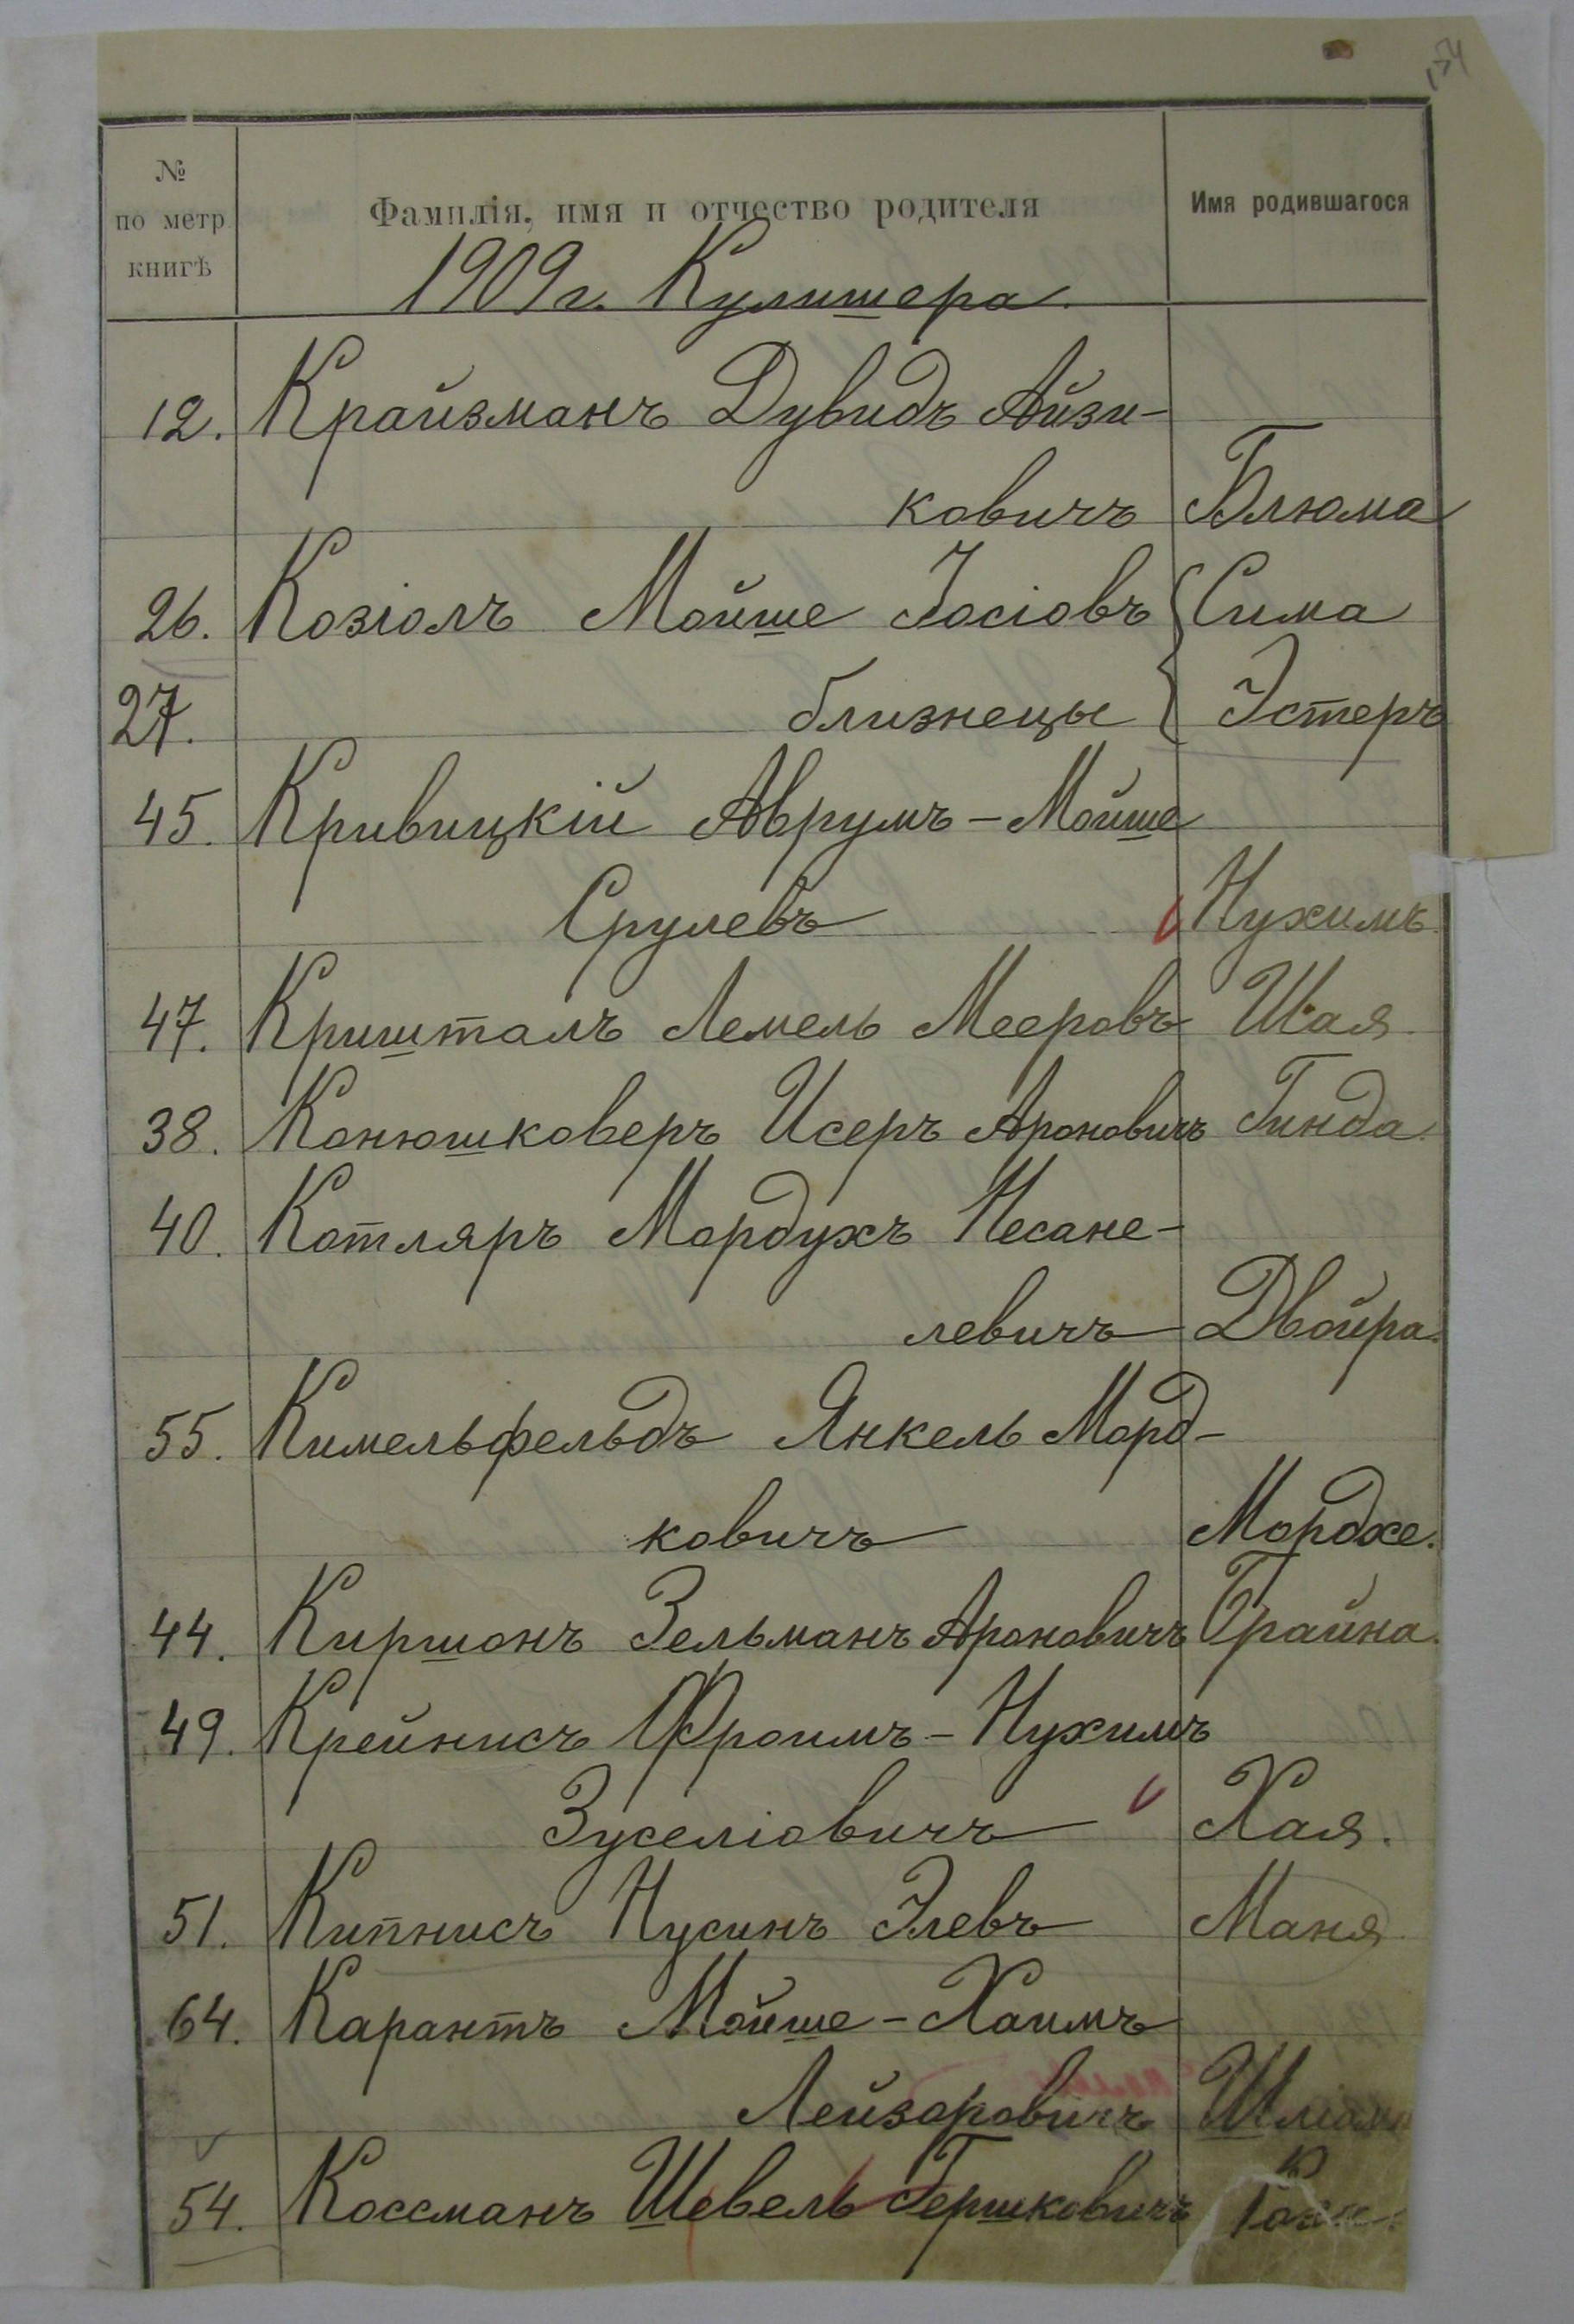 154
№
по метр.
книгѣ
Фамилія, имя и отчество родителя
Имя родившагося
1909 г. Кулишера.
12. Крайзманъ Дувидъ Айзи-
ковичъ Блюма
26. Козіолъ Мойше Іосіовъ Сима
27. близнецы Эстеръ
45. Кривицкій Аврумъ-Мойше
Срулевъ Нухимъ
47. Кришталъ Лемель Мееровъ Шая.
38. Конюшковеръ Исеръ Ароновичъ Гинда.
40. Котляръ Мордухъ Несане-
левичъ Двойра.
55. Кимельфельдъ Янкель Морд-
ковичъ Мордхе.
44. Киршонъ Зельманъ Ароновичъ Брайна.
49. Крейнисъ Фроимъ-Нухимъ
Зуселіовичъ Хая.
51. Кипнисъ Нусинъ Элевъ Маня.
64. Карантъ Мойше-Хаимъ
Лейзоровичъ
54. Коссманъ Шевель Гершковичъ